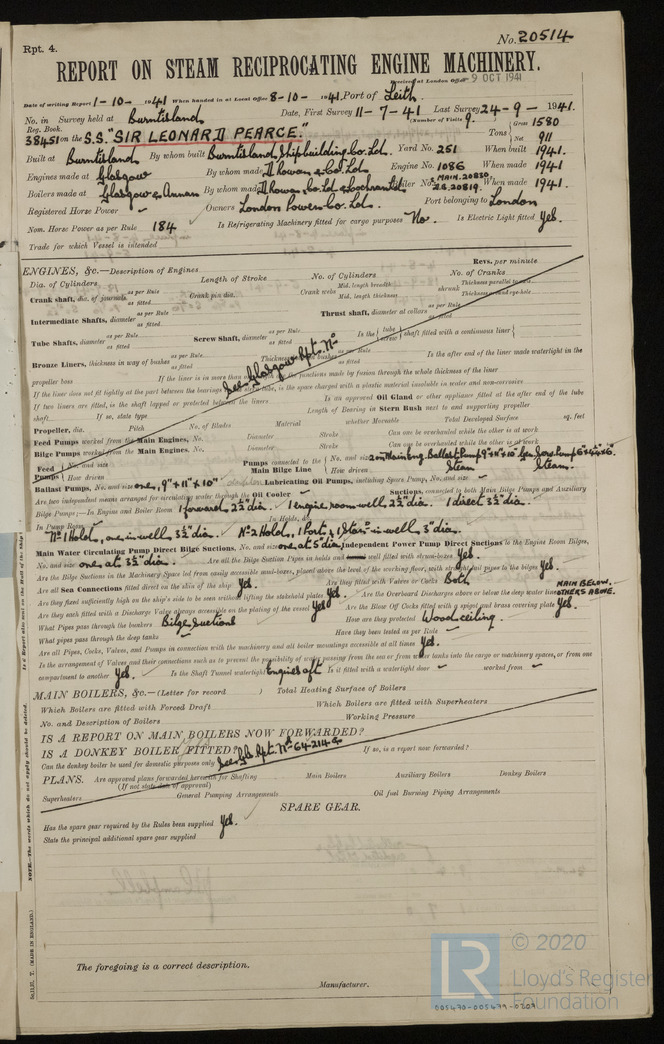 Rpt. 4.
No. 20514
REPORT ON STEAM RECIPROCATING ENGINE MACHINERY.
Received at London Office 9 OCT 1941
Date of writing Report 1-10-1941 When handed in at Local Office 8-10-1941 Port of Leith.
No. in Survey held at Burntisland Date, First Survey 11-7-41 Last Survey 24-9-1941.
Reg. Book. (Number of Visits 9.)
38451 on the S.S. "SIR LEONARD PEARCE." Tons Gross 1580 Net 911
Built at Burntisland By whom built Burntisland Shipbuilding Co. Ld. Yard No. 251 When built 1941.
Engines made at Glasgow By whom made D. Rowan & Co. Ld. Engine No. 1086 When made 1941
Boilers made at Glasgow & Annan By whom made D. Rowan & Co. Ld & Cochrans Ld Boiler No. MAIN. 20820. When made 1941.
Registered Horse Power Owners London Power Co. Ld. Port belonging to London
Nom. Horse Power as per Rule 184 Is Refrigerating Machinery fitted for cargo purposes No. Is Electric Light fitted Yes.
Trade for which Vessel is intended
ENGINES, &c.—Description of Engines Revs. per minute
Dia. of Cylinders Length of Stroke No. of Cylinders No. of Cranks
Crank shaft, dia. of journals as per Rule as fitted Crank pin dia. Crank webs Mid. length breadth Mid. length thickness shrunk Thickness parallel to axis Thickness around eye-hole
Intermediate Shafts, diameter as per Rule as fitted Thrust shaft, diameter at collars as per Rule as fitted
Tube Shafts, diameter as per Rule as fitted Screw Shaft, diameter as per Rule as fitted Is the tube screw shaft fitted with a continuous liner
Bronze Liners, thickness in way of bushes as per Rule as fitted Thickness between bushes as per Rule as fitted Is the after end of the liner made watertight in the
propeller boss If the liner is in more than one length are the junctions made by fusion through the whole thickness of the liner
See Glasgow Rpt. No
If the liner does not fit tightly at the part between the bearings in the stern tube, is the space charged with a plastic material insoluble in water and non-corrosive
If two liners are fitted, is the shaft lapped or protected between the liners Is an approved Oil Gland or other appliance fitted at the after end of the tube
shaft If so, state type Length of Bearing in Stern Bush next to and supporting propeller
Propeller, dia. Pitch No. of Blades Material whether Moveable Total Developed Surface sq. feet
Feed Pumps worked from the Main Engines, No. Diameter Stroke Can one be overhauled while the other is at work
Bilge Pumps worked from the Main Engines, No. Diameter Stroke Can one be overhauled while the other is at work
Feed Pumps No. and size How driven Pumps connected to the Main Bilge Line No. and size 2 on Main Eng. Ballast Pump 9"×11"×10" Gen. Serv. Pump 6"×4¾"×6" How driven Steam Steam.
Ballast Pumps, No. and size one, 9"×11"×10" Lubricating Oil Pumps, including Spare Pump, No. and size
Are two independent means arranged for circulating water through the Oil Cooler Suctions, connected to both Main Bilge Pumps and Auxiliary
Bilge Pumps;—In Engine and Boiler Room 1 forward 2½" dia. 1 engine room well 2½" dia. 1 direct 3½" dia.
In Pump Room In Holds, &c.
No 1 Hold, one in well 3½" dia. No 2 Hold, 1 Port & 1 Starbd in well, 3" dia.
Main Water Circulating Pump Direct Bilge Suctions, No. and size one at 5" dia Independent Power Pump Direct Suctions to the Engine Room Bilges,
No. and size one at 3½" dia. Are all the Bilge Suction Pipes in holds and well fitted with strum-boxes Yes.
Are the Bilge Suctions in the Machinery Space led from easily accessible mud-boxes, placed above the level of the working floor, with straight tail pipes to the bilges Yes.
Are all Sea Connections fitted direct on the skin of the ship Yes. Are they fitted with Valves or Cocks Both
Are they fixed sufficiently high on the ship's side to be seen without lifting the stokehold plates Yes Are the Overboard Discharges above or below the deep water line MAIN BELOW. OTHERS ABOVE.
Are they each fitted with a Discharge Valve always accessible on the plating of the vessel Yes Are the Blow Off Cocks fitted with a spigot and brass covering plate Yes.
What Pipes pass through the bunkers Bilge Suctions How are they protected Wood ceiling.
What pipes pass through the deep tanks Have they been tested as per Rule
Are all Pipes, Cocks, Valves, and Pumps in connection with the machinery and all boiler mountings accessible at all times Yes.
Is the arrangement of Valves and their connections such as to prevent the possibility of water passing from the sea or from water tanks into the cargo or machinery spaces, or from one
compartment to another Yes. Is the Shaft Tunnel watertight Engines aft Is it fitted with a watertight door worked from
MAIN BOILERS, &c.—(Letter for record ) Total Heating Surface of Boilers
Which Boilers are fitted with Forced Draft Which Boilers are fitted with Superheaters
No. and Description of Boilers Working Pressure
IS A REPORT ON MAIN BOILERS NOW FORWARDED?
IS A DONKEY BOILER FITTED? See Gls Rpt. No 64214 If so, is a report now forwarded?
Can the donkey boiler be used for domestic purposes only
PLANS. Are approved plans forwarded herewith for Shafting Main Boilers Auxiliary Boilers Donkey Boilers
(If not state date of approval)
Superheaters General Pumping Arrangements Oil fuel Burning Piping Arrangements
SPARE GEAR.
Has the spare gear required by the Rules been supplied Yes.
State the principal additional spare gear supplied
NOTE.—The words which do not apply should be deleted.
The foregoing is a correct description.
Manufacturer.
(MADE IN ENGLAND.)
LR
© 2020
Lloyd's Register
Foundation
005490-005499-0209